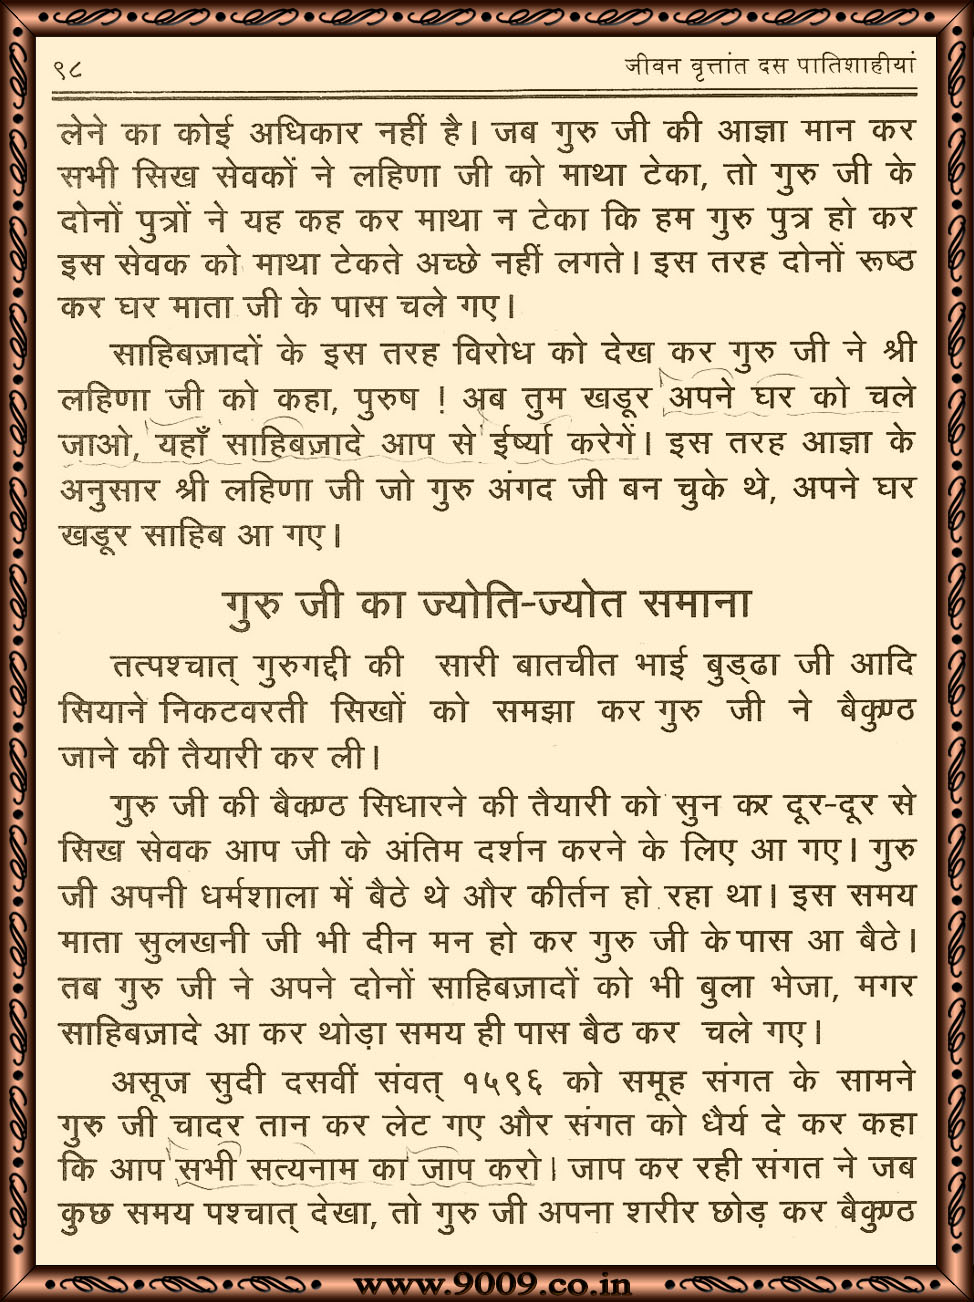 ९८
जीवन वृत्तांत दस पातिशाहीयां
लेने का कोई अधिकार नहीं है। जब गुरु जी की आज्ञा मान कर
सभी सिख सेवकों ने लहिणा जी को माथा टेका, तो गुरु जी के
दोनों पुत्रों ने यह कह कर माथा न टेका कि हम गुरु पुत्र हो कर
इस सेवक को माथा टेकते अच्छे नहीं लगते। इस तरह दोनों रूष्ठ
कर घर माता जी के पास चले गए।
साहिबज़ादों के इस तरह विरोध को देख कर गुरु जी ने श्री
लहिणा जी को कहा, पुरुष ! अब तुम खडूर अपने घर को चले
जाओ, यहाँ साहिबज़ादे आप से ईर्ष्या करेगें। इस तरह आज्ञा के
अनुसार श्री लहिणा जी जो गुरु अंगद जी बन चुके थे, अपने घर
खडूर साहिब आ गए।
गुरु जी का ज्योति-ज्योत समाना
तत्पश्चात् गुरुगद्दी की सारी बातचीत भाई बुड्ढा जी आदि
सियाने निकटवरती सिखों को समझा कर गुरु जी ने बैकुण्ठ
जाने की तैयारी कर ली।
गुरु जी की बैकण्ठ सिधारने की तैयारी को सुन कर दूर-दूर से
सिख सेवक आप जी के अंतिम दर्शन करने के लिए आ गए। गुरु
जी अपनी धर्मशाला में बैठे थे और कीर्तन हो रहा था। इस समय
माता सुलखनी जी भी दीन मन हो कर गुरु जी के पास आ बैठे।
तब गुरु जी ने अपने दोनों साहिबज़ादों को भी बुला भेजा, मगर
साहिबज़ादे आ कर थोड़ा समय ही पास बैठ कर चले गए।
असूज सुदी दसवीं संवत् १५९६ को समूह संगत के सामने
गुरु जी चादर तान कर लेट गए और संगत को धैर्य दे कर कहा
कि आप सभी सत्यनाम का जाप करो। जाप कर रही संगत ने जब
कुछ समय पश्चात् देखा, तो गुरु जी अपना शरीर छोड़ कर बैकुण्ठ
www.9009.co.in